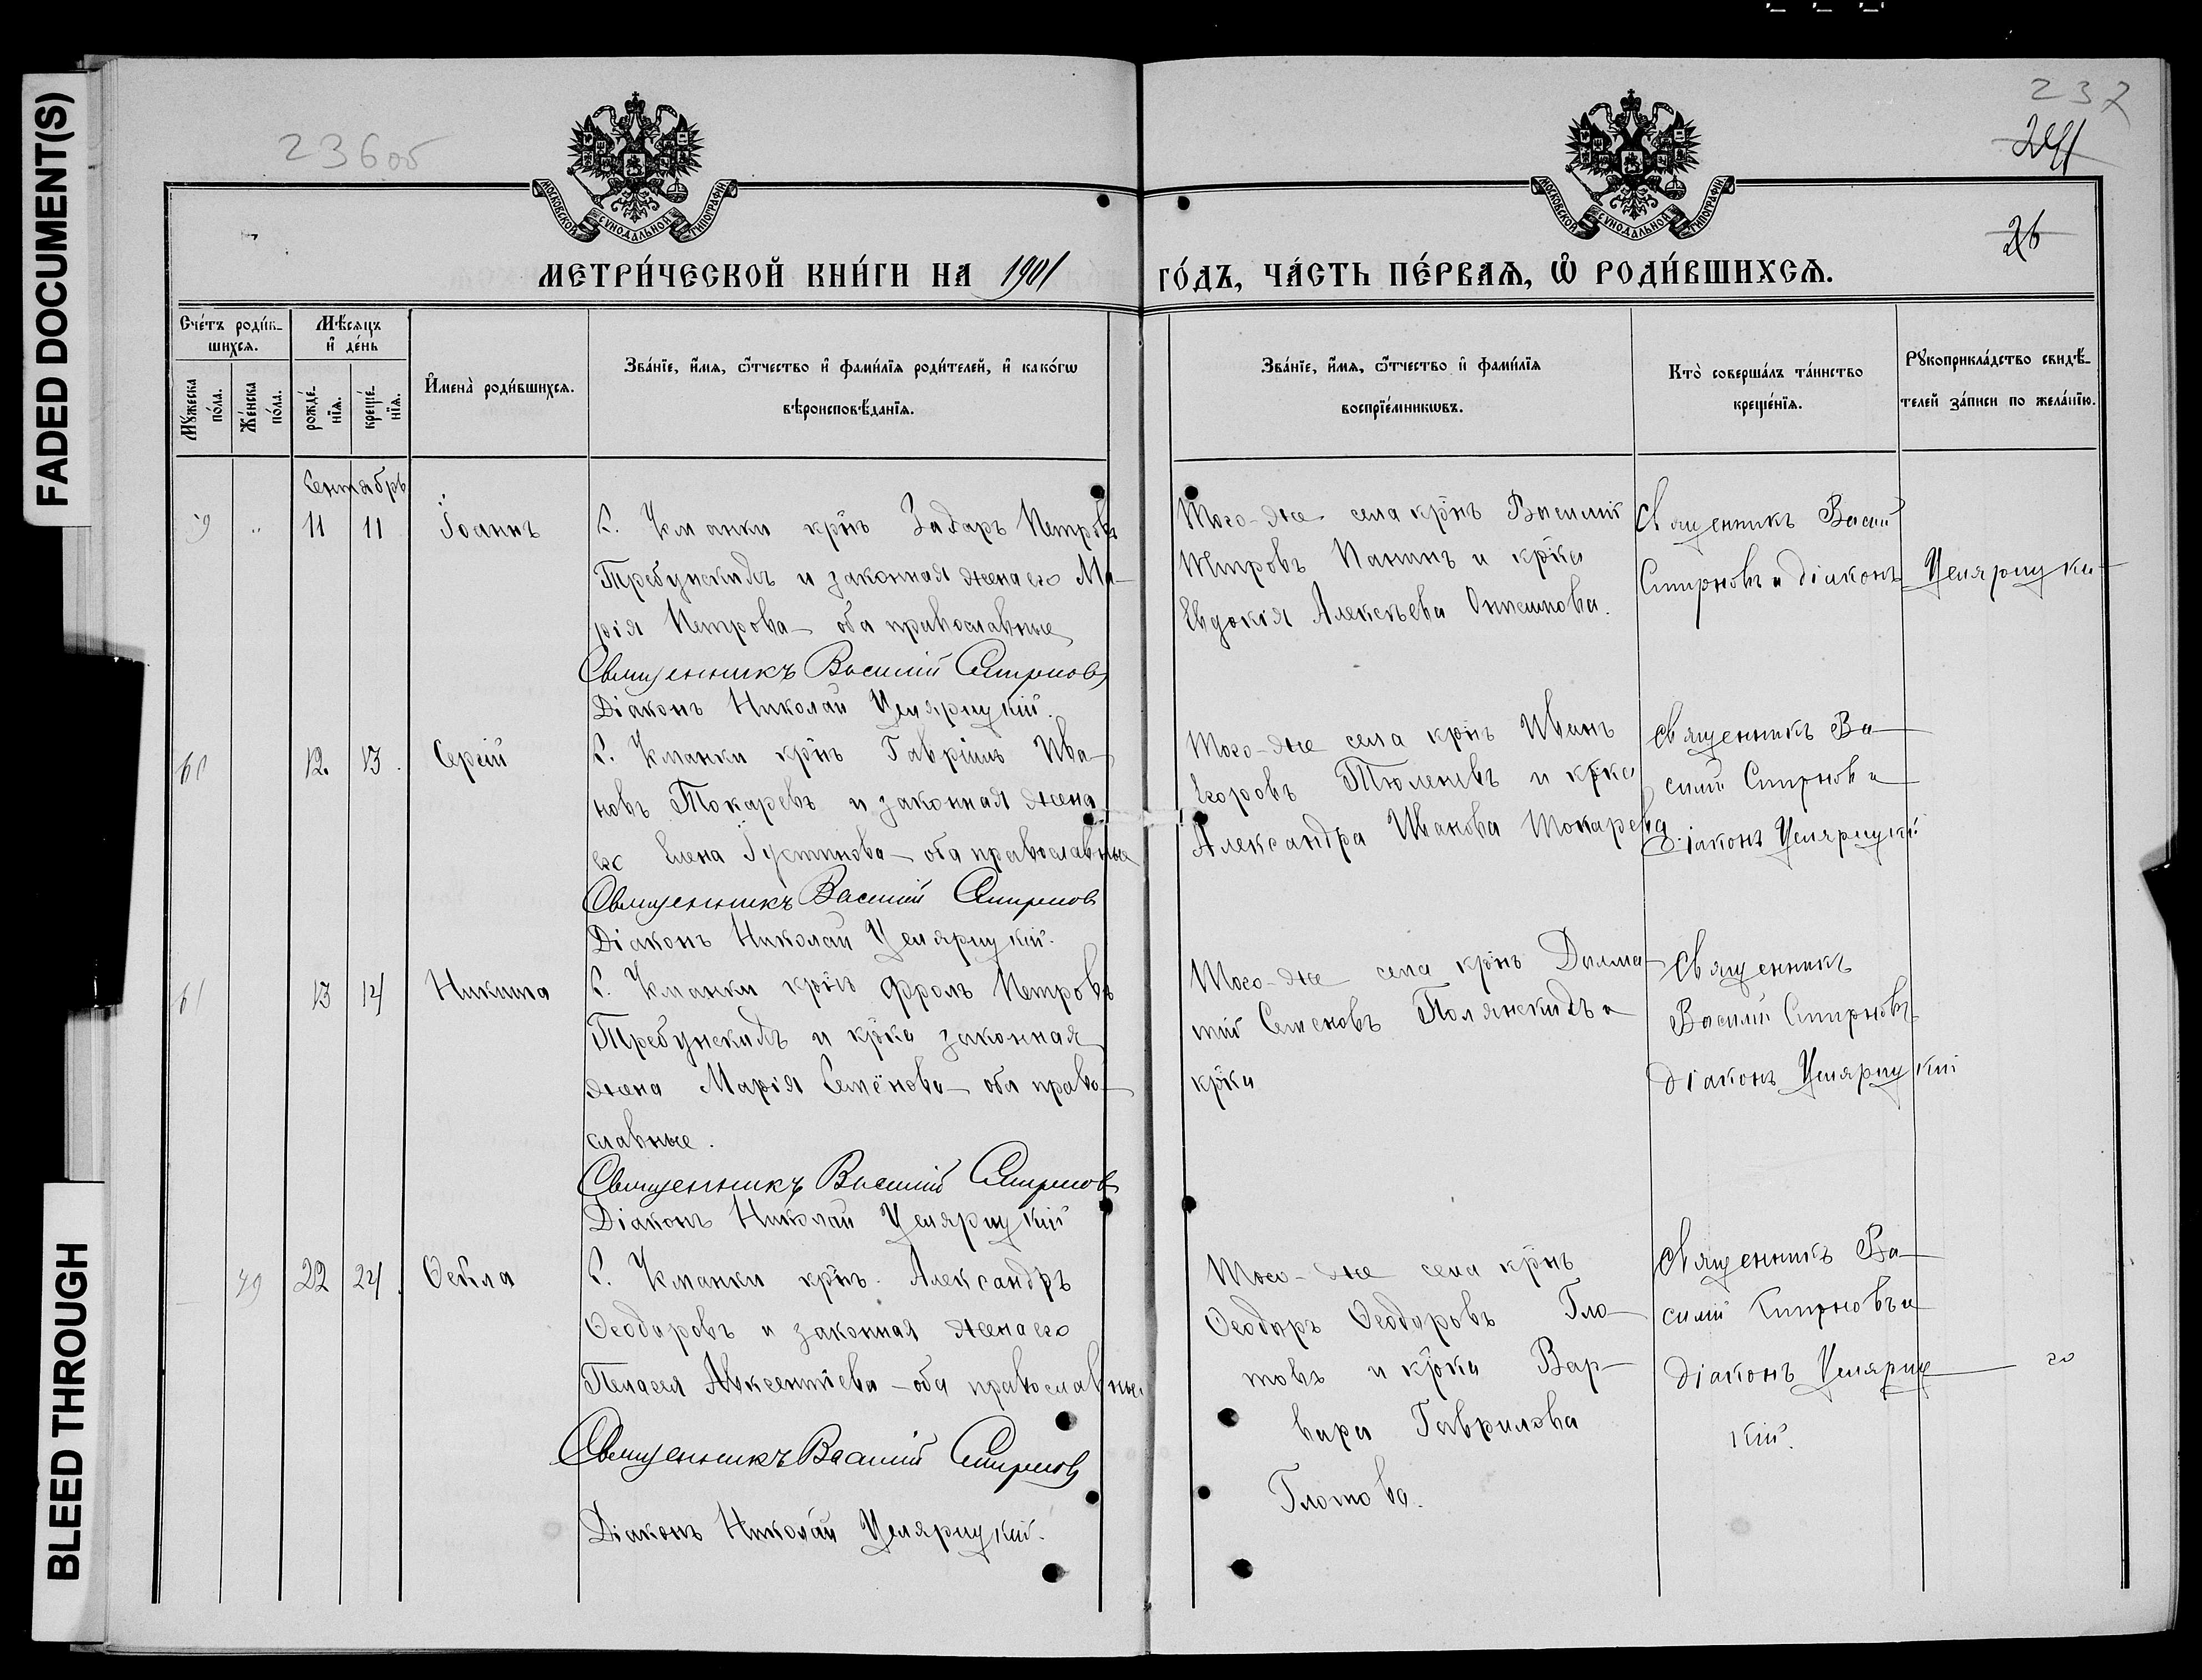 FADED DOCUMENT(S)
BLEED THROUGH
236об
237
241
26
МОСКОВСКОЙ СѴНОДАЛЬНОЙ ТИПОГРАФІИ
МОСКОВСКОЙ СѴНОДАЛЬНОЙ ТИПОГРАФІИ
МЕТРИ́ЧЕСКОЙ КНИ́ГИ НА 1901 ГО́ДЪ, ЧА́СТЬ ПЕ́РВАѦ, Ѡ҆ РОДИ́ВШИХСѦ.
Сче́тъ роди́в-
шихсѧ.
Мѣ́сѧцъ
и҆ де́нь
Мꙋ́жеска
по́ла.
Же́нска
по́ла.
рожде́-
нїѧ.
креще́-
нїѧ.
И҆мена̀ роди́вшихсѧ.
Зва́нїе, и҆́мѧ, ѻ҆́тчество и҆ фами́лїѧ роди́телей, и҆ како́гѡ
вѣроисповѣ́данїѧ.
Зва́нїе, и҆́мѧ, ѻ҆́тчество и҆ фами́лїѧ
воспрїе́мникѡвъ.
Кто̀ соверша́лъ та́инство
креще́нїѧ.
Рꙋкоприкла́дство свидѣ́-
телей за́писи по жела́нїю.
Сентябрь
59 " 11 11 Іоаннъ
С. Кманки крнъ Захаръ Петровъ
Требунскихъ и законная жена его Ма-
рія Петрова - оба православные
Священникъ Василій Смирновъ
Діаконъ Николай Целярицкій.
Того-же села крнъ Василій
Петровъ Панинъ и крка
Евдокія Алексѣева
Священникъ Васий
Смирновъ и діаконъ Целярицки-
60 12. 13. Сергій
С. Кманки крнъ Гавріилъ Ива-
новъ Токаревъ и законная жена
его Елена Густинова - оба православные
Священникъ Василій Смирнов
Діаконъ Николай Целярицкій.
Того-же села крнъ Иванъ
Егоровъ Тюленевъ и крка
Александра Иванова Токарева
Священникъ Ва-
силій Смирнов и
діаконъ Целярицкій
61 13 14 Никита
С. Кманки крнъ Фролъ Петровъ
Требунскихъ и крка законная
жена Марія Семёнова - оба право-
славные.
Священникъ Василій Смирнов
Діаконъ Николай Целярицкій
Того-же села крнъ Далма-
тій Семеновъ Полянскихъ и
крка
Священникъ
Василій Смирновъ
діаконъ Целярицкій
49 22 24. Ѳекла
С. Кманки крнъ Александръ
Ѳеодоровъ и законная жена его
Пелагея Авксентіева - оба православные
Священникъ Василій Смирновъ
Діаконъ Николай Целярицкій.
Того-же села крнъ
Ѳеодоръ Ѳеодоровъ Гло-
товъ и крка Вар-
вара Гаврилова
Глотова.
Священникъ Ва-
силій Смирновъ и
діаконъ Целяриц-
кій.